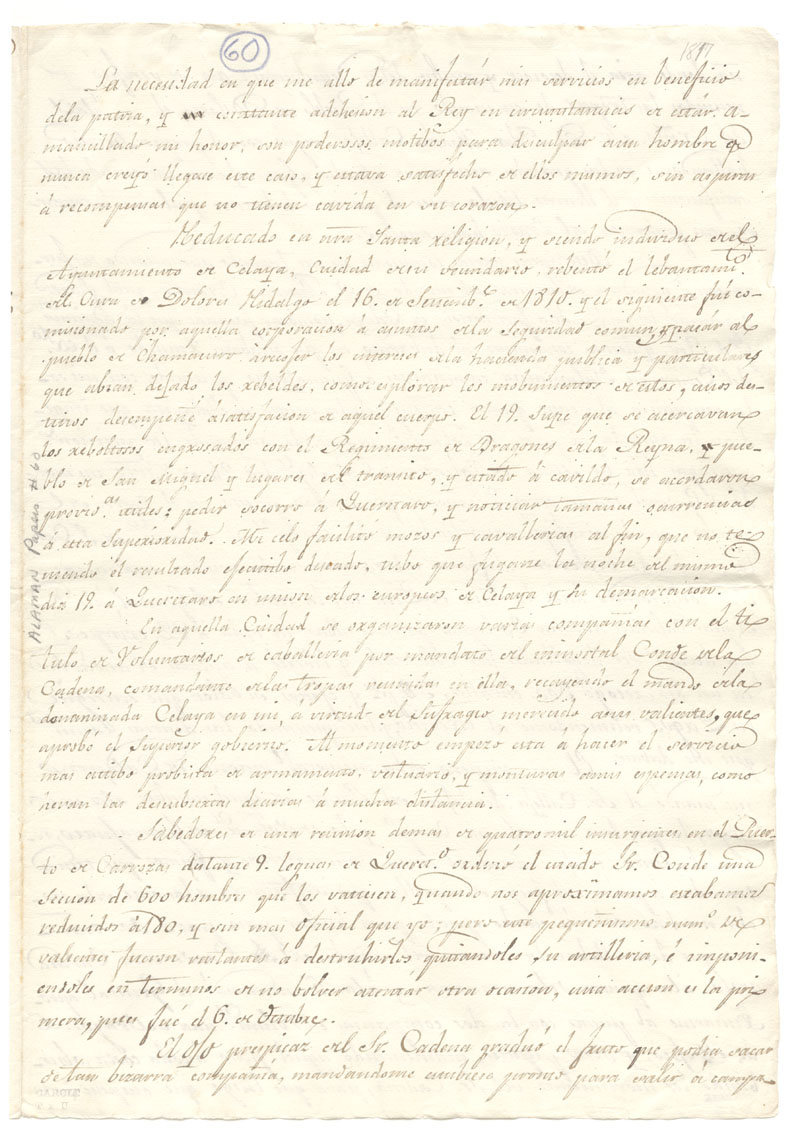 60
1817
La necesidad en que me allo de manifestár mis servicios en beneficio
dela patria, y constante adehesion al Rey en circunstancias de estár a-
mancillado mi honor, son poderosos motibos para disculpar áun hombre q.
nunca creyó llegase este caso, y estava satisfecho de ellos mismos, sin aspirar
á recompensas que no tienen cavida en su corazon.
Heducado en nra Santa religion, y siendo individuo del
Ayuntamiento de Celaya, Ciudad de su vecindario, rebentó el lebantam.to
del Cura de Dolores Hidalgo el 16. de Setiemb.e de 1810. y el siguiente fuí co-
misionado por aquella corporacion á asuntos dela seguridad comun, y pasár al
pueblo de Chamacuro á recoser los intereses dela hacienda publica y particulares
que abian dejado los rebeldes, como explorar los mobimientos de estos, cuios des-
tinos desempeñé ásatisfacion de aquel cuerpo. El 19. supe que se acercavan
los reboltosos engrosados con el Regimiento de Dragones dela Reyna, pue-
blo de San Miguel y lugares del transito, y citado á cavildo, se acordaron
provis.as utiles: pedir socorro á Queretaro, y noticiar tamañas ocurrencias
á esta Superioridad. Mi celo facilitó mozos y cavallerias al fin, que no te-
niendo el resultado efectibo deseado, tubo que fugarse la noche del mismo
dia 19. á Queretaro en union delos europeos de Celaya y su demarcacion.
En aquella Ciudad se organizaron varias compañias con el ti-
tulo de Voluntarios de caballeria por mandato del inmortal Conde dela
Cadena, comandante delas tropas reunidas en ella, recayendo el mando dela
denominada Celaya en mi, á virtud del sufragio merecido desus valientes, que
aprobó el Superior gobierno. Al momento empezó esta á hacer el servicio
mas actibo probista de armamento, vestuario, y monturas amis espensas, como
heran las descubiertas diarias á mucha distancia.
Sabedores de una reunion demas de quatromil insurgentes en el Puer-
to de Carrozas distante 9. leguas de Queret.o ordenó el citado Sr. Conde una
Seccion de 600 hombres que los vatiesen, quando nos aproximamos estabamos
reducidos á 180, y sin mas oficial que yo; pero este pequeñisimo num.o de
valientes fueron vastantes á destruhirlos quitandoles su artilleria, é imponi-
endoles en terminos de no bolver atentar otra ocasion, cuia accion es la pri-
mera, pues fué el 6. de Octubre.
El ojo perspicaz del Sr. Cadena graduó el fruto que podia sacar
de tan bizarra compañia, mandandome estubiese pronto para salir á campa-
ALAMAN Papers #60